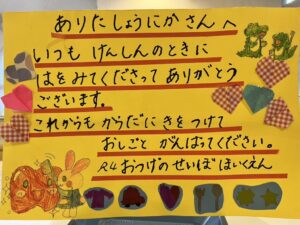 ありたしょうにかさんへ
いつも げんしんのときに
はをみてくださって ありがとう
ございます。
これからも からだに きをつけて
おしごと がんばってください。
R4 おつげの せいぼ ほいくえん